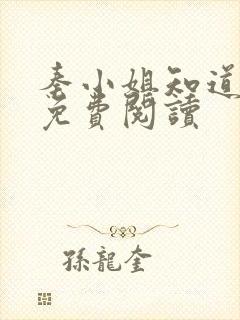 秦小姐知道
免費閱讀
孫龍奎